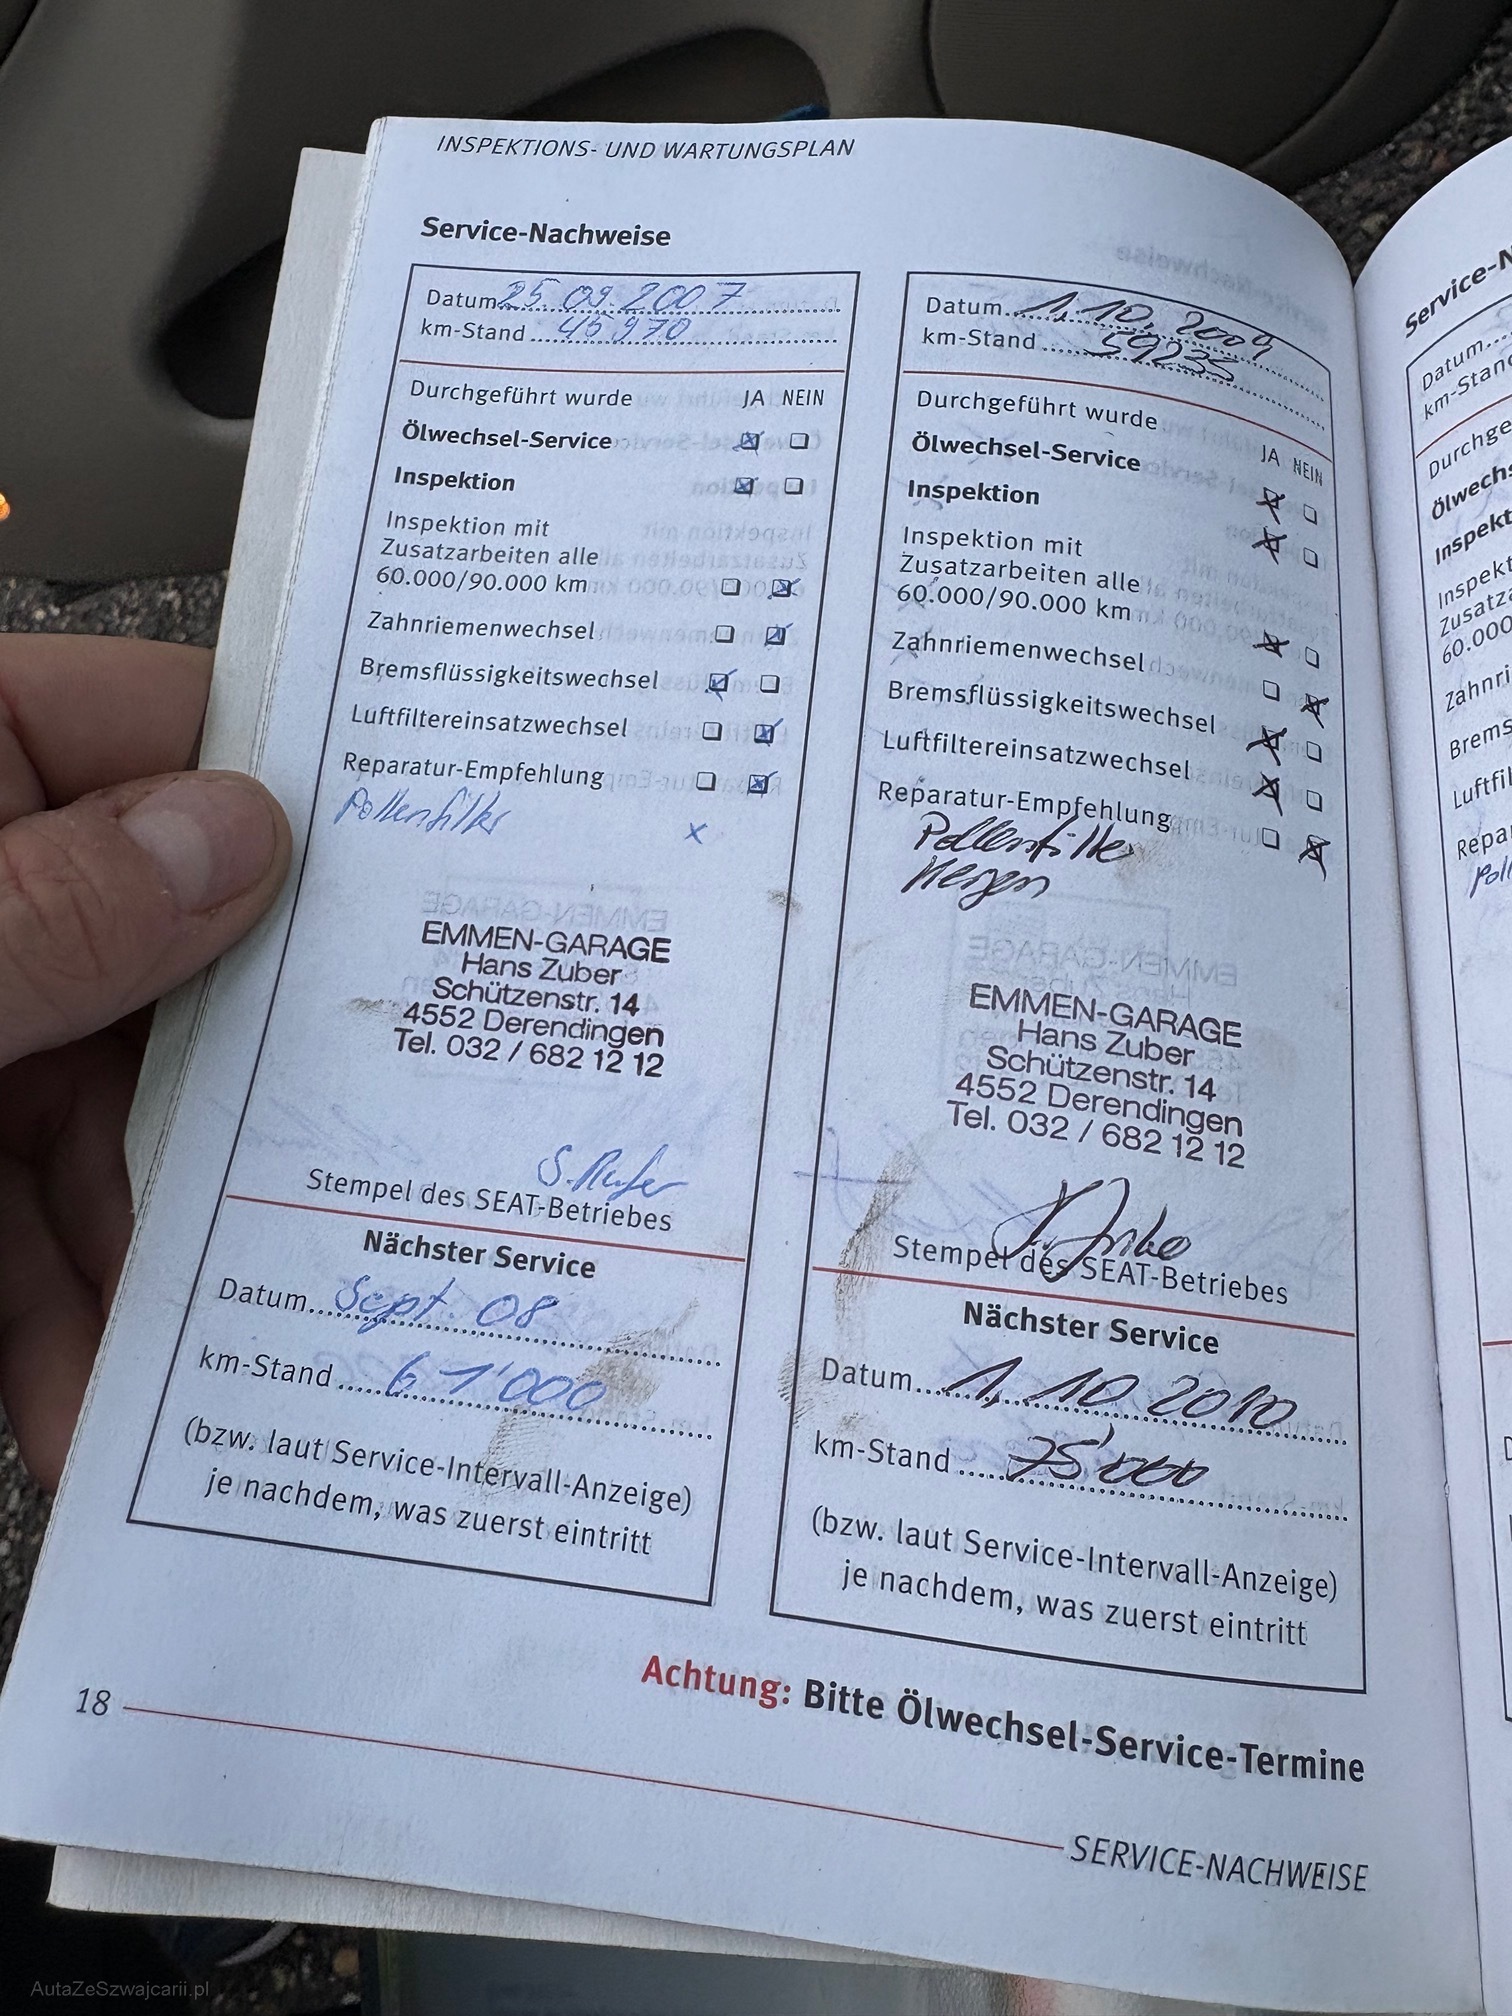 INSPEKTIONS- UND WARTUNGSPLAN
Service-Nachweise
Datum 25.09.2007
km-Stand 45970
Durchgeführt wurde JA NEIN
Ölwechsel-Service
Inspektion
Inspektion mit
Zusatzarbeiten alle
60.000/90.000 km
Zahnriemenwechsel
Bremsflüssigkeitswechsel
Luftfiltereinsatzwechsel
Reparatur-Empfehlung
Pollenfilter x
EMMEN-GARAGE
Hans Zuber
Schützenstr. 14
4552 Derendingen
Tel. 032 / 682 12 12
Stempel des SEAT-Betriebes
Nächster Service
Datum Sept. 08
km-Stand 61'000
(bzw. laut Service-Intervall-Anzeige)
je nachdem, was zuerst eintritt
Datum 1.10.2009
km-Stand 59235
Durchgeführt wurde
JA NEIN
Ölwechsel-Service
Inspektion
Inspektion mit
Zusatzarbeiten alle
60.000/90.000 km
Zahnriemenwechsel
Bremsflüssigkeitswechsel
Luftfiltereinsatzwechsel
Reparatur-Empfehlung
Pollenfilter
EMMEN-GARAGE
Hans Zuber
Schützenstr. 14
4552 Derendingen
Tel. 032 / 682 12 12
Stempel des SEAT-Betriebes
Nächster Service
Datum 1.10.2010
km-Stand 75'000
(bzw. laut Service-Intervall-Anzeige)
je nachdem, was zuerst eintritt
Achtung: Bitte Ölwechsel-Service-Termine
18
SERVICE-NACHWEISE
Datum
AutaZeSzwajcarii.pl